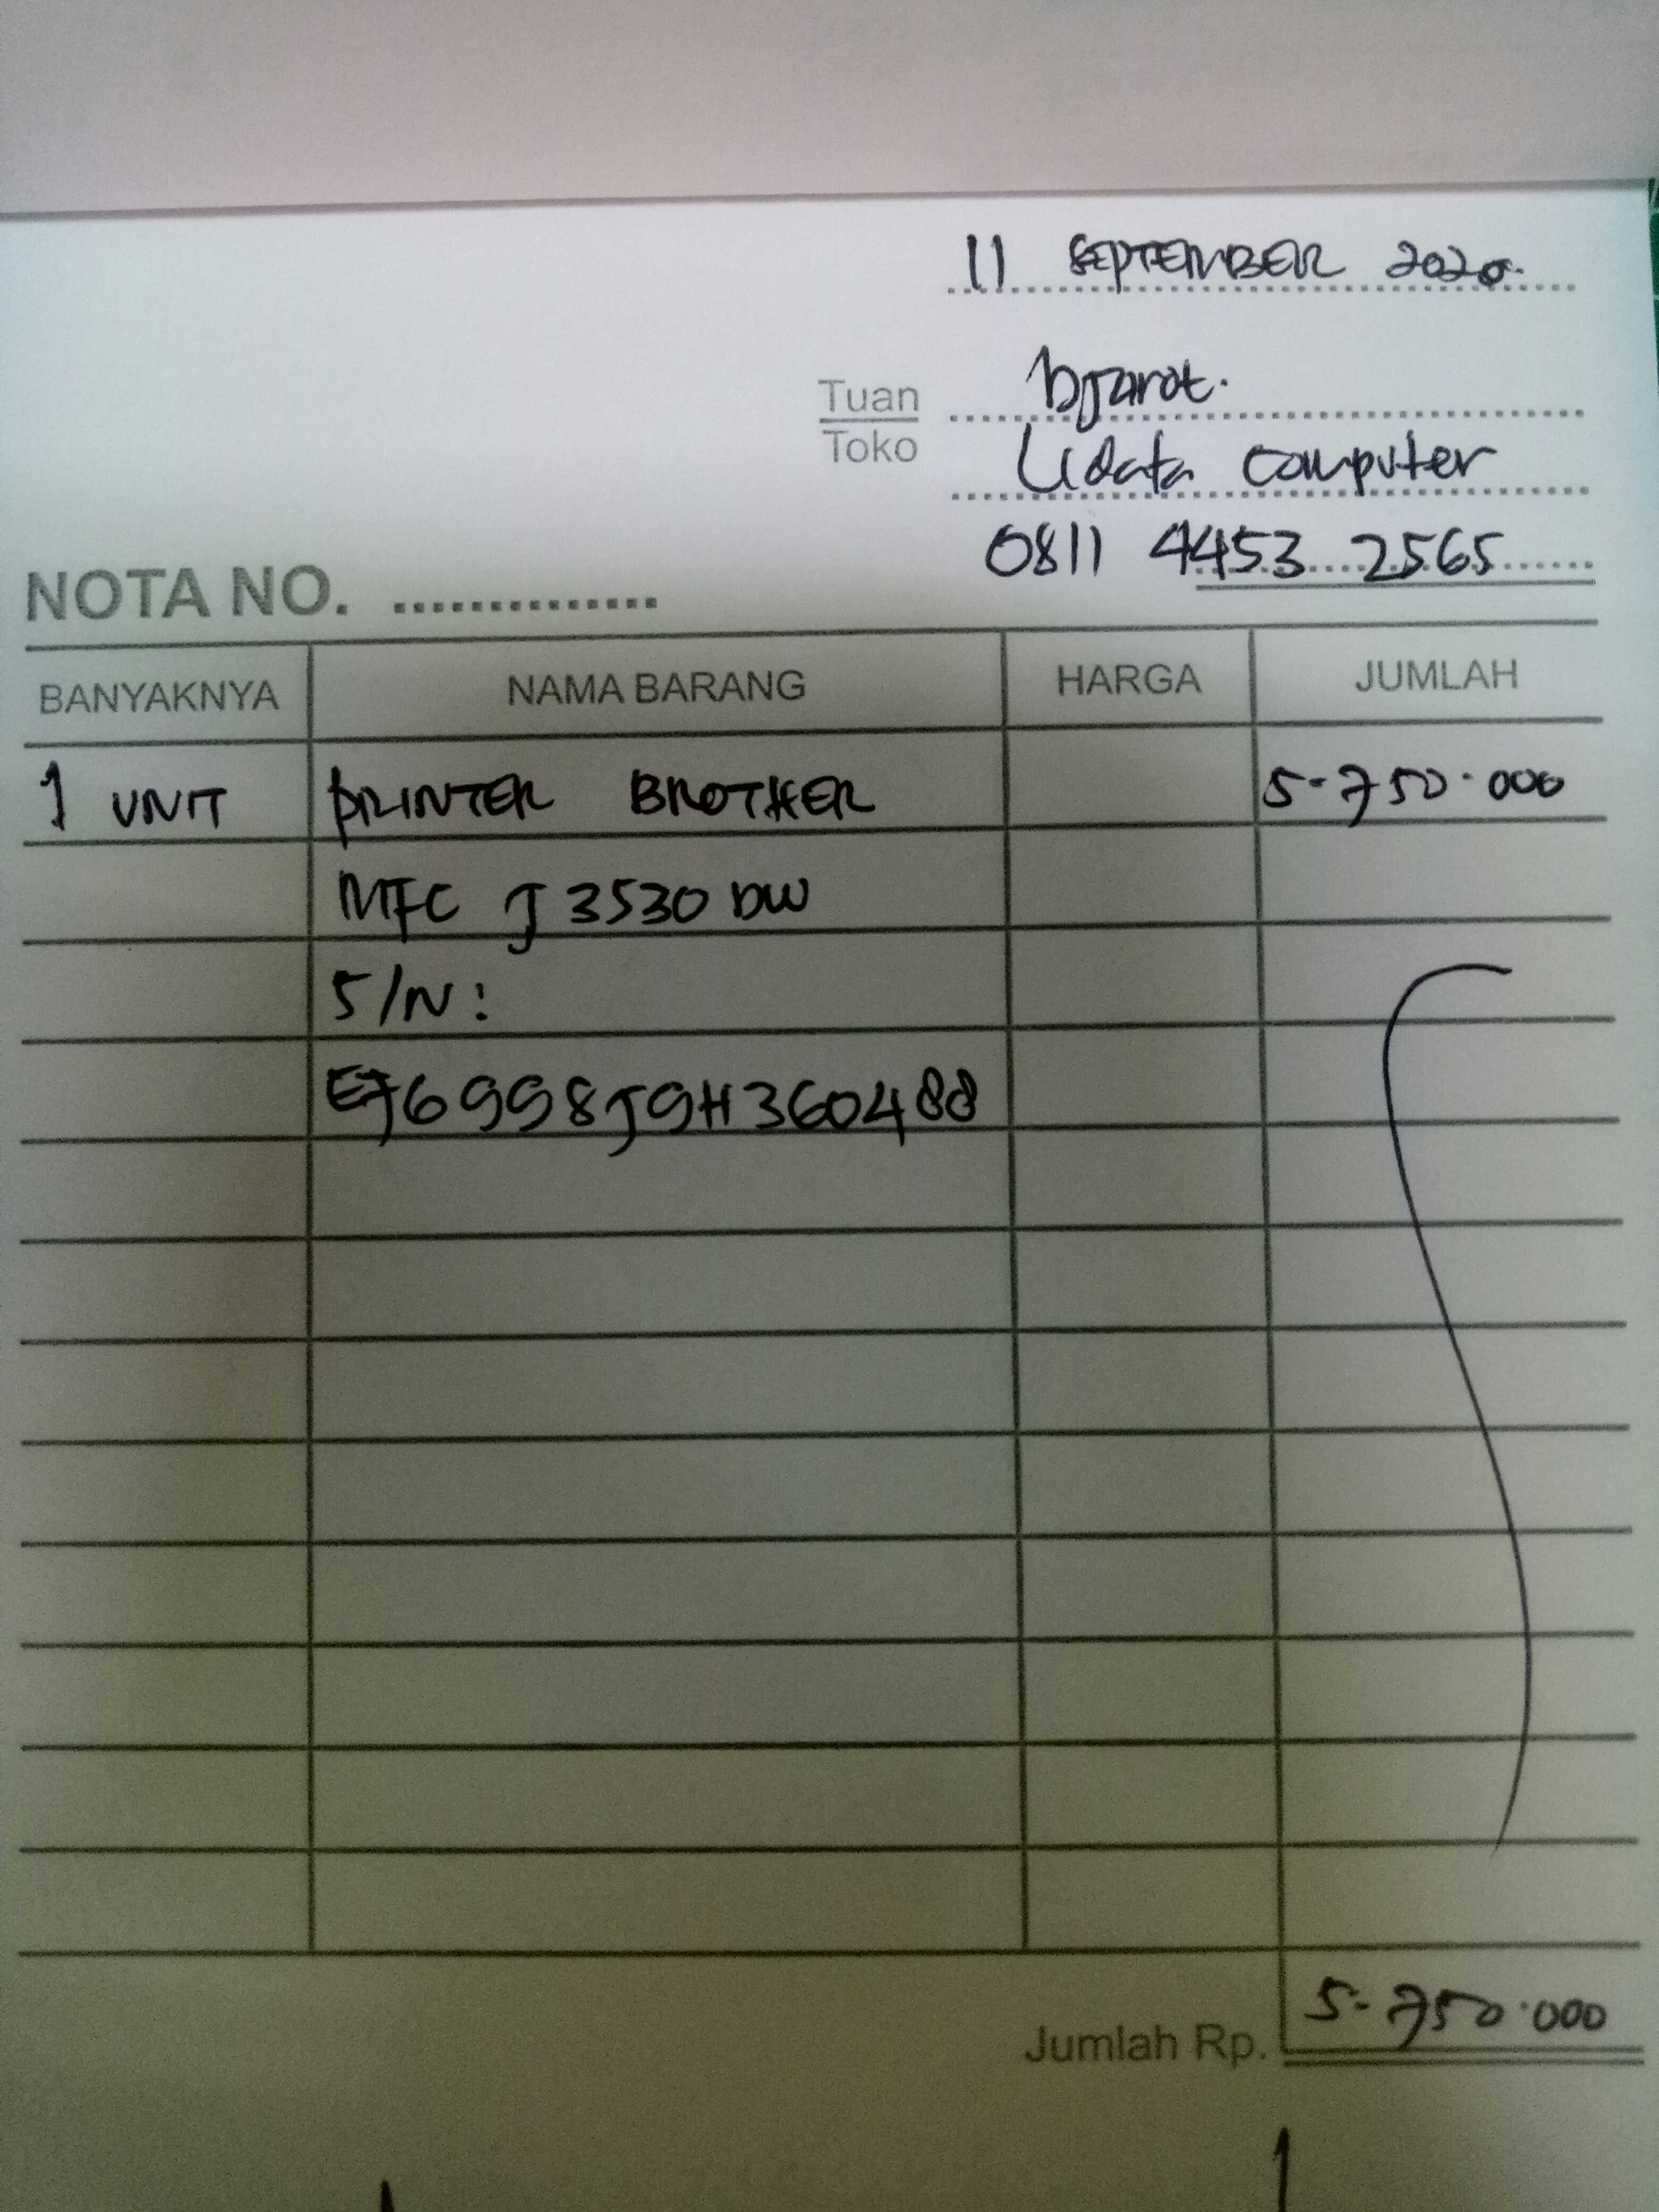 11 SEPTEMBER 2020.
Tuan
Toko
Bjarot.
Udata computer
0811 4453 2565
NOTA NO. ..............
BANYAKNYA NAMA BARANG HARGA JUMLAH
1 UNIT PRINTER BROTHER 5-750.000
MFC J 3530 DW
S/N:
E76998J9H360488
Jumlah Rp. 5-750.000